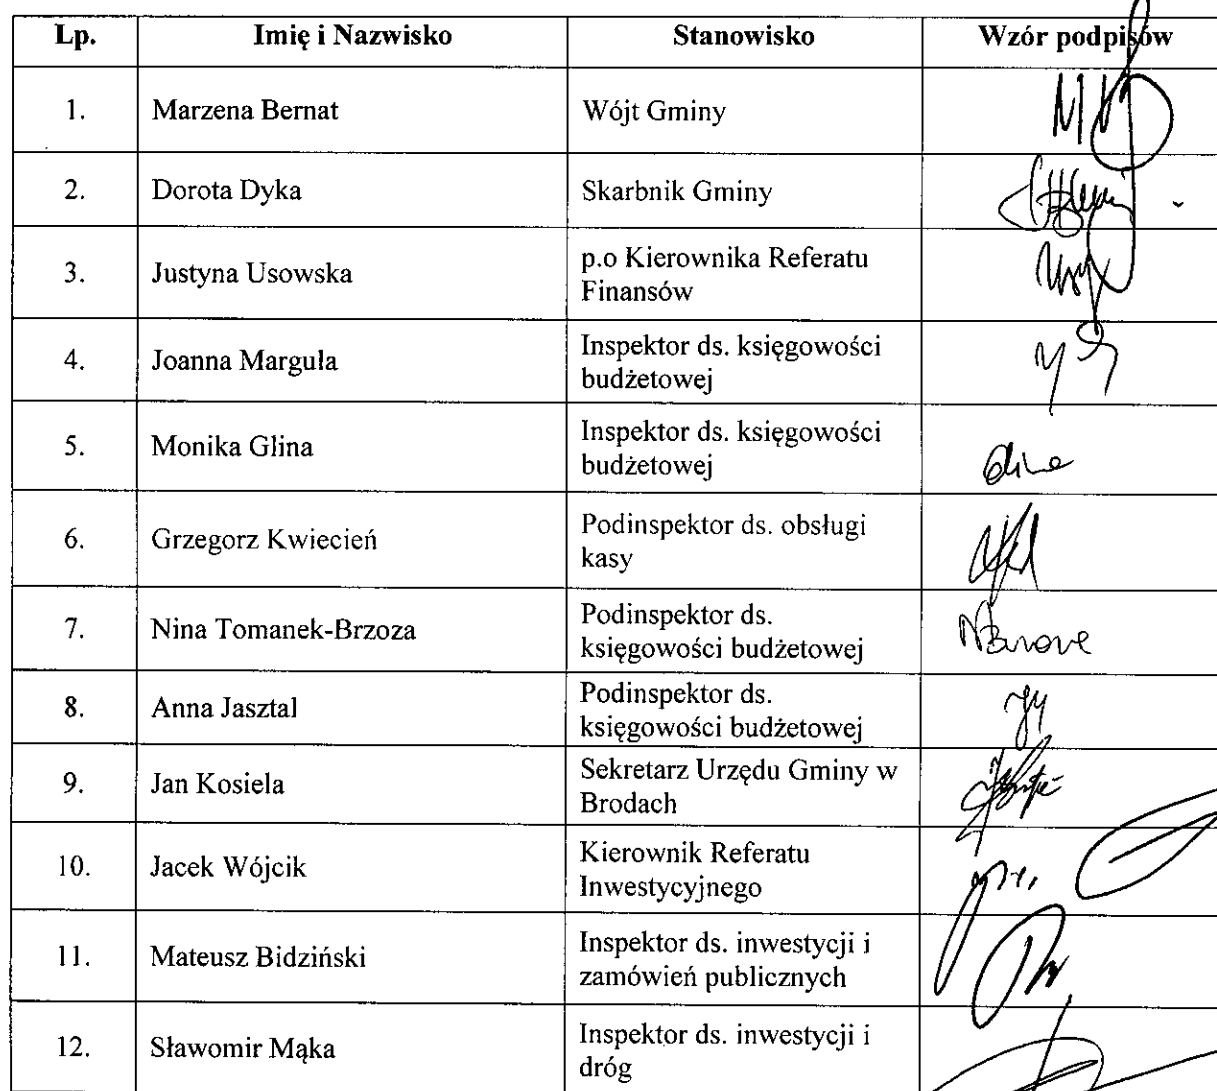 Lp. Imię i Nazwisko Stanowisko Wzór podpisów
1. Marzena Bernat Wójt Gminy
2. Dorota Dyka Skarbnik Gminy
3. Justyna Usowska p.o Kierownika Referatu
Finansów
4. Joanna Marguła Inspektor ds. księgowości
budżetowej
5. Monika Glina Inspektor ds. księgowości
budżetowej
6. Grzegorz Kwiecień Podinspektor ds. obsługi
kasy
7. Nina Tomanek-Brzoza Podinspektor ds.
księgowości budżetowej
8. Anna Jasztal Podinspektor ds.
księgowości budżetowej
9. Jan Kosiela Sekretarz Urzędu Gminy w
Brodach
10. Jacek Wójcik Kierownik Referatu
Inwestycyjnego
11. Mateusz Bidziński Inspektor ds. inwestycji i
zamówień publicznych
12. Sławomir Mąka Inspektor ds. inwestycji i
dróg